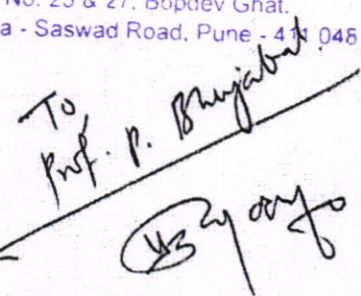 No. 25 & 27, Bopdev Ghat.
a - Saswad Road, Pune - 411 048
To,
Prof. P. Bhujabal.